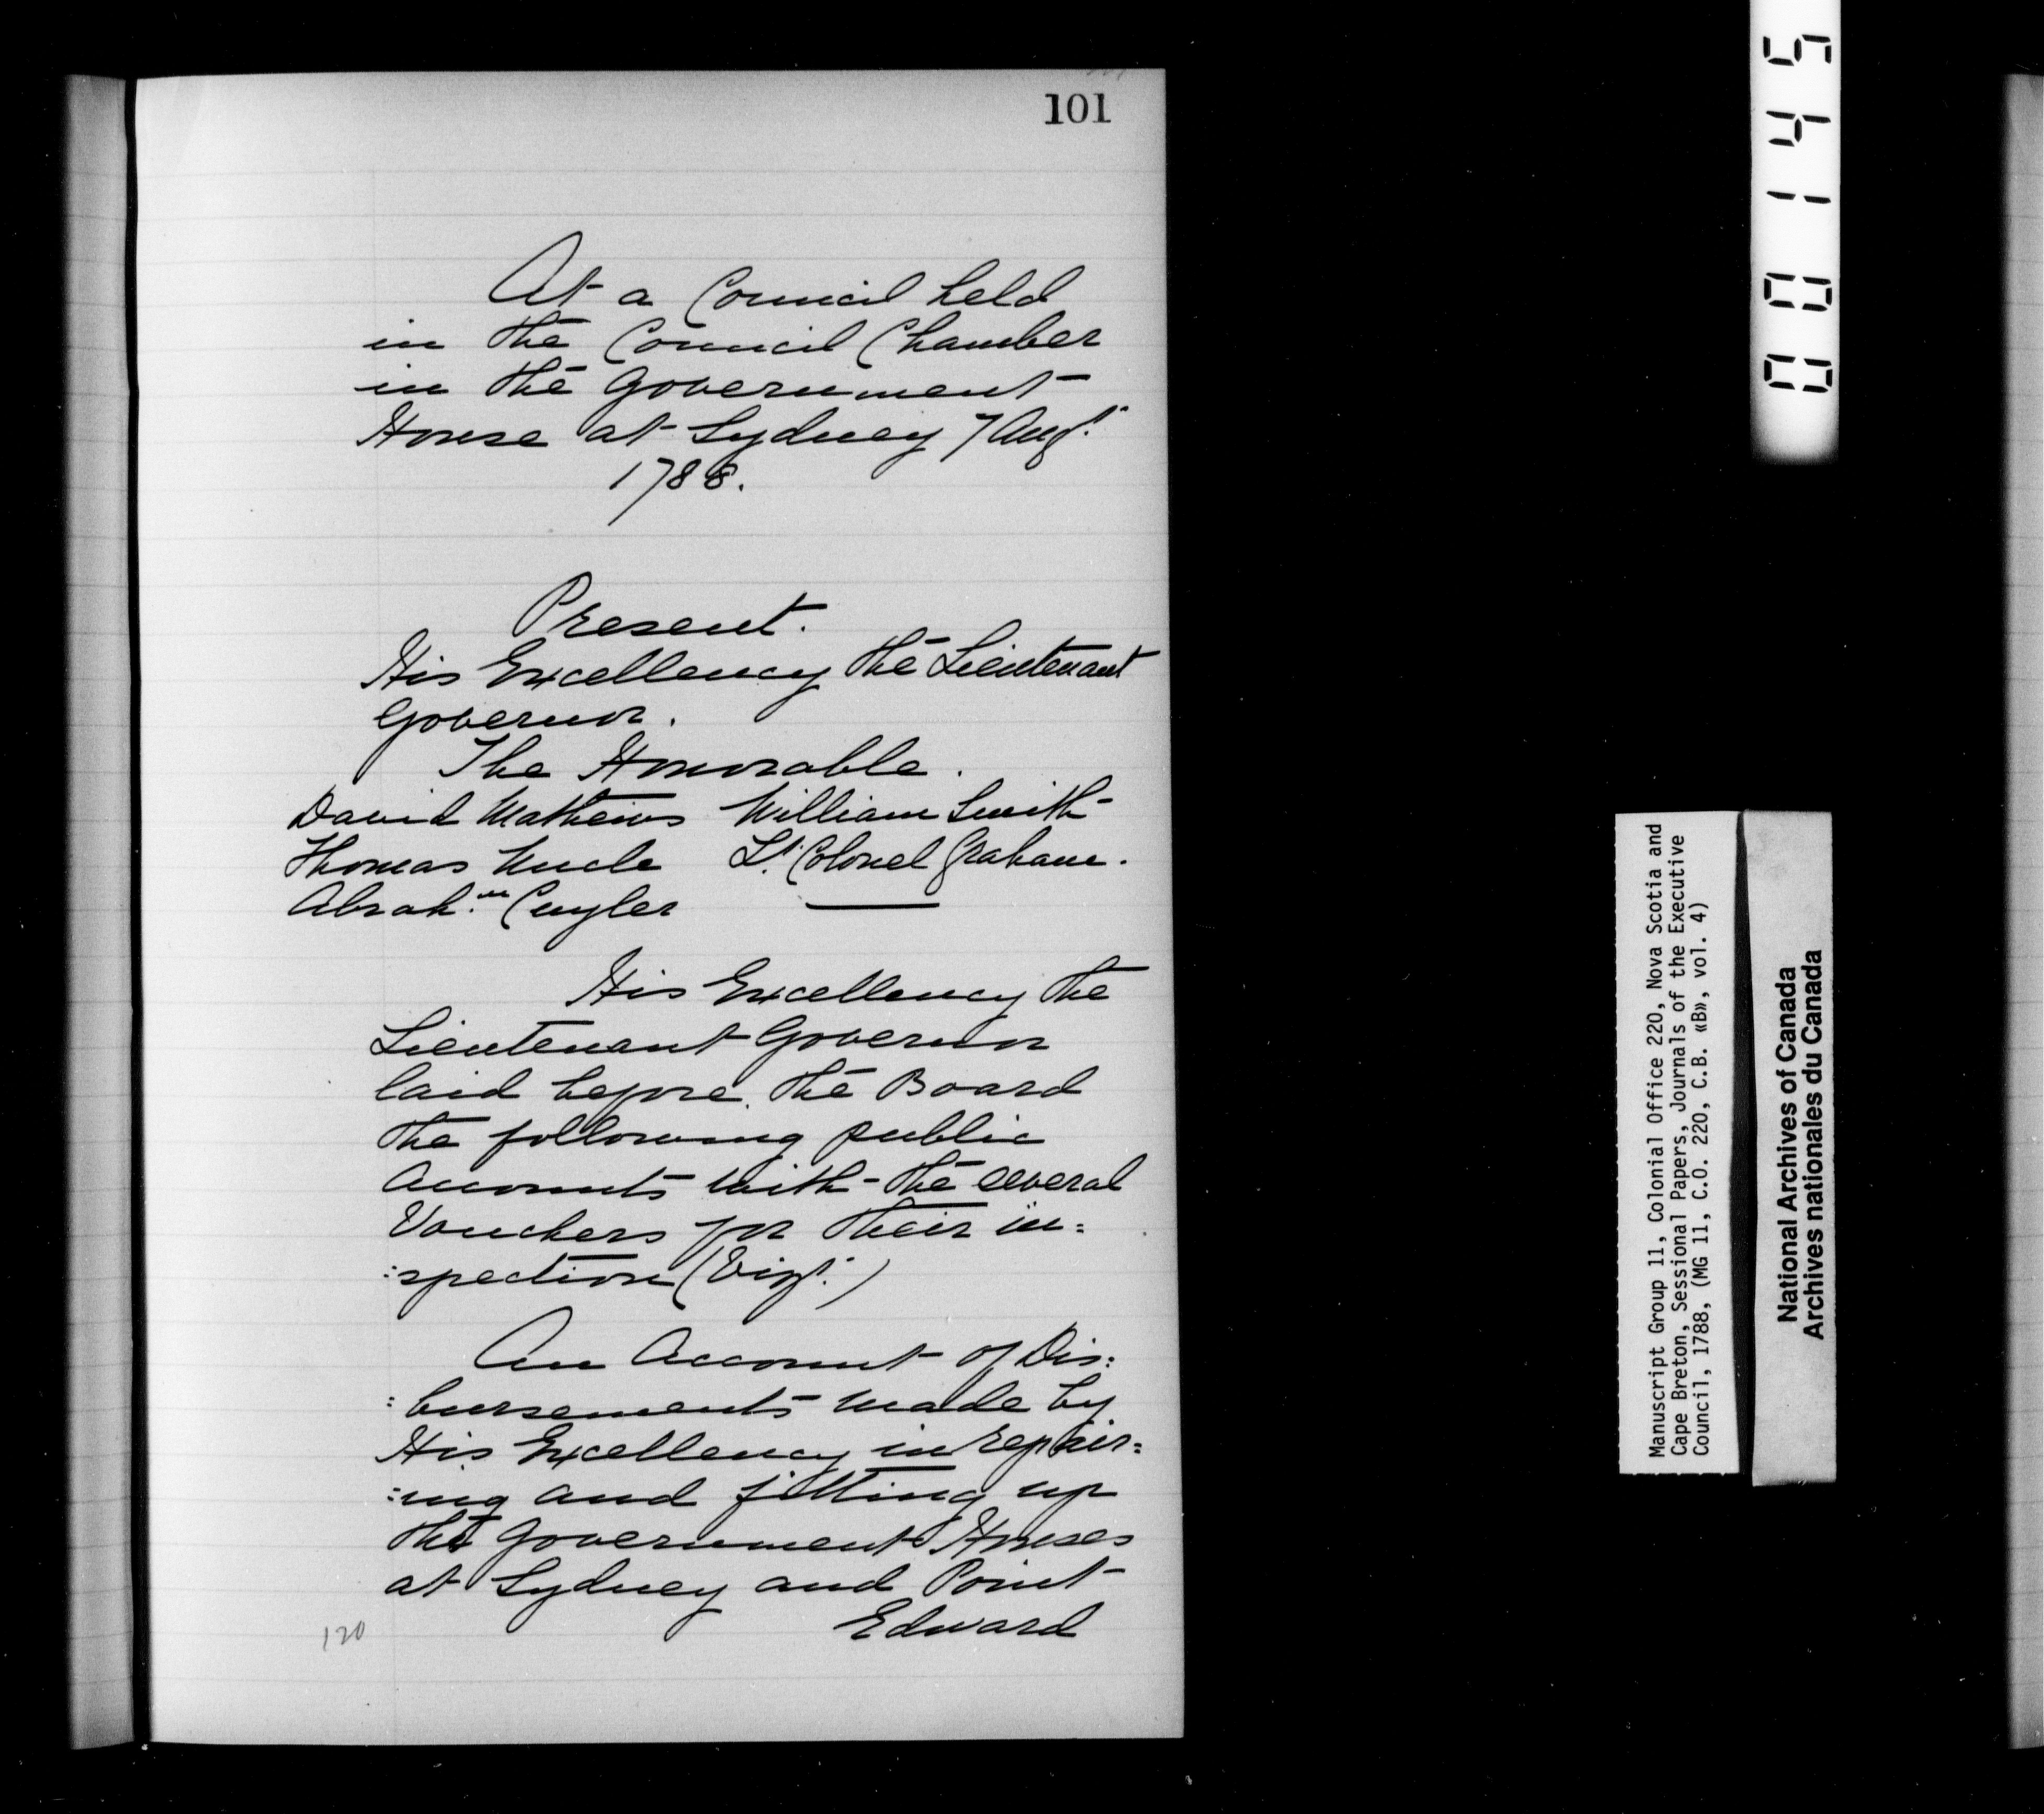 101
At a Council held
in the Council Chamber
in the Government
House at Sydney 7 Augt.
1788.
Present.
His Excellency the Lieutenant
Governor.
The Honorable.
David Mathews William Smith
Thomas Uncle Lt. Colonel Graham.
Abrah.m Cuyler
His Excellency the
Lieutenant Governor
laid before the Board
the following public
Accounts with the several
Vouchers for their in=
:spection (Vizt.)
An Account of Dis:
:bursements made by
His Excellency in repair=
:ing and fitting up
the Government Houses
at Sydney and Point
Edward
120
000145
Manuscript Group 11, Colonial Office 220, Nova Scotia and
Cape Breton, Sessional Papers, Journals of the Executive
Council, 1788, (MG 11, C.O. 220, C.B. «B», vol. 4)
National Archives of Canada
Archives nationales du Canada